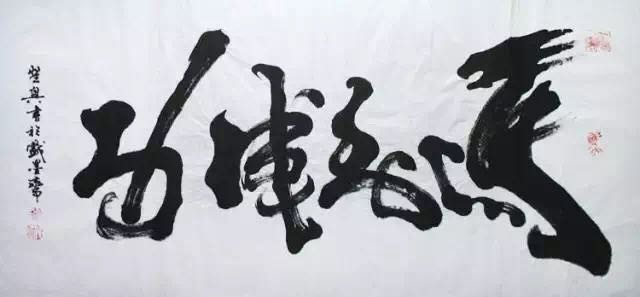 馬到成功
興書於墨齋